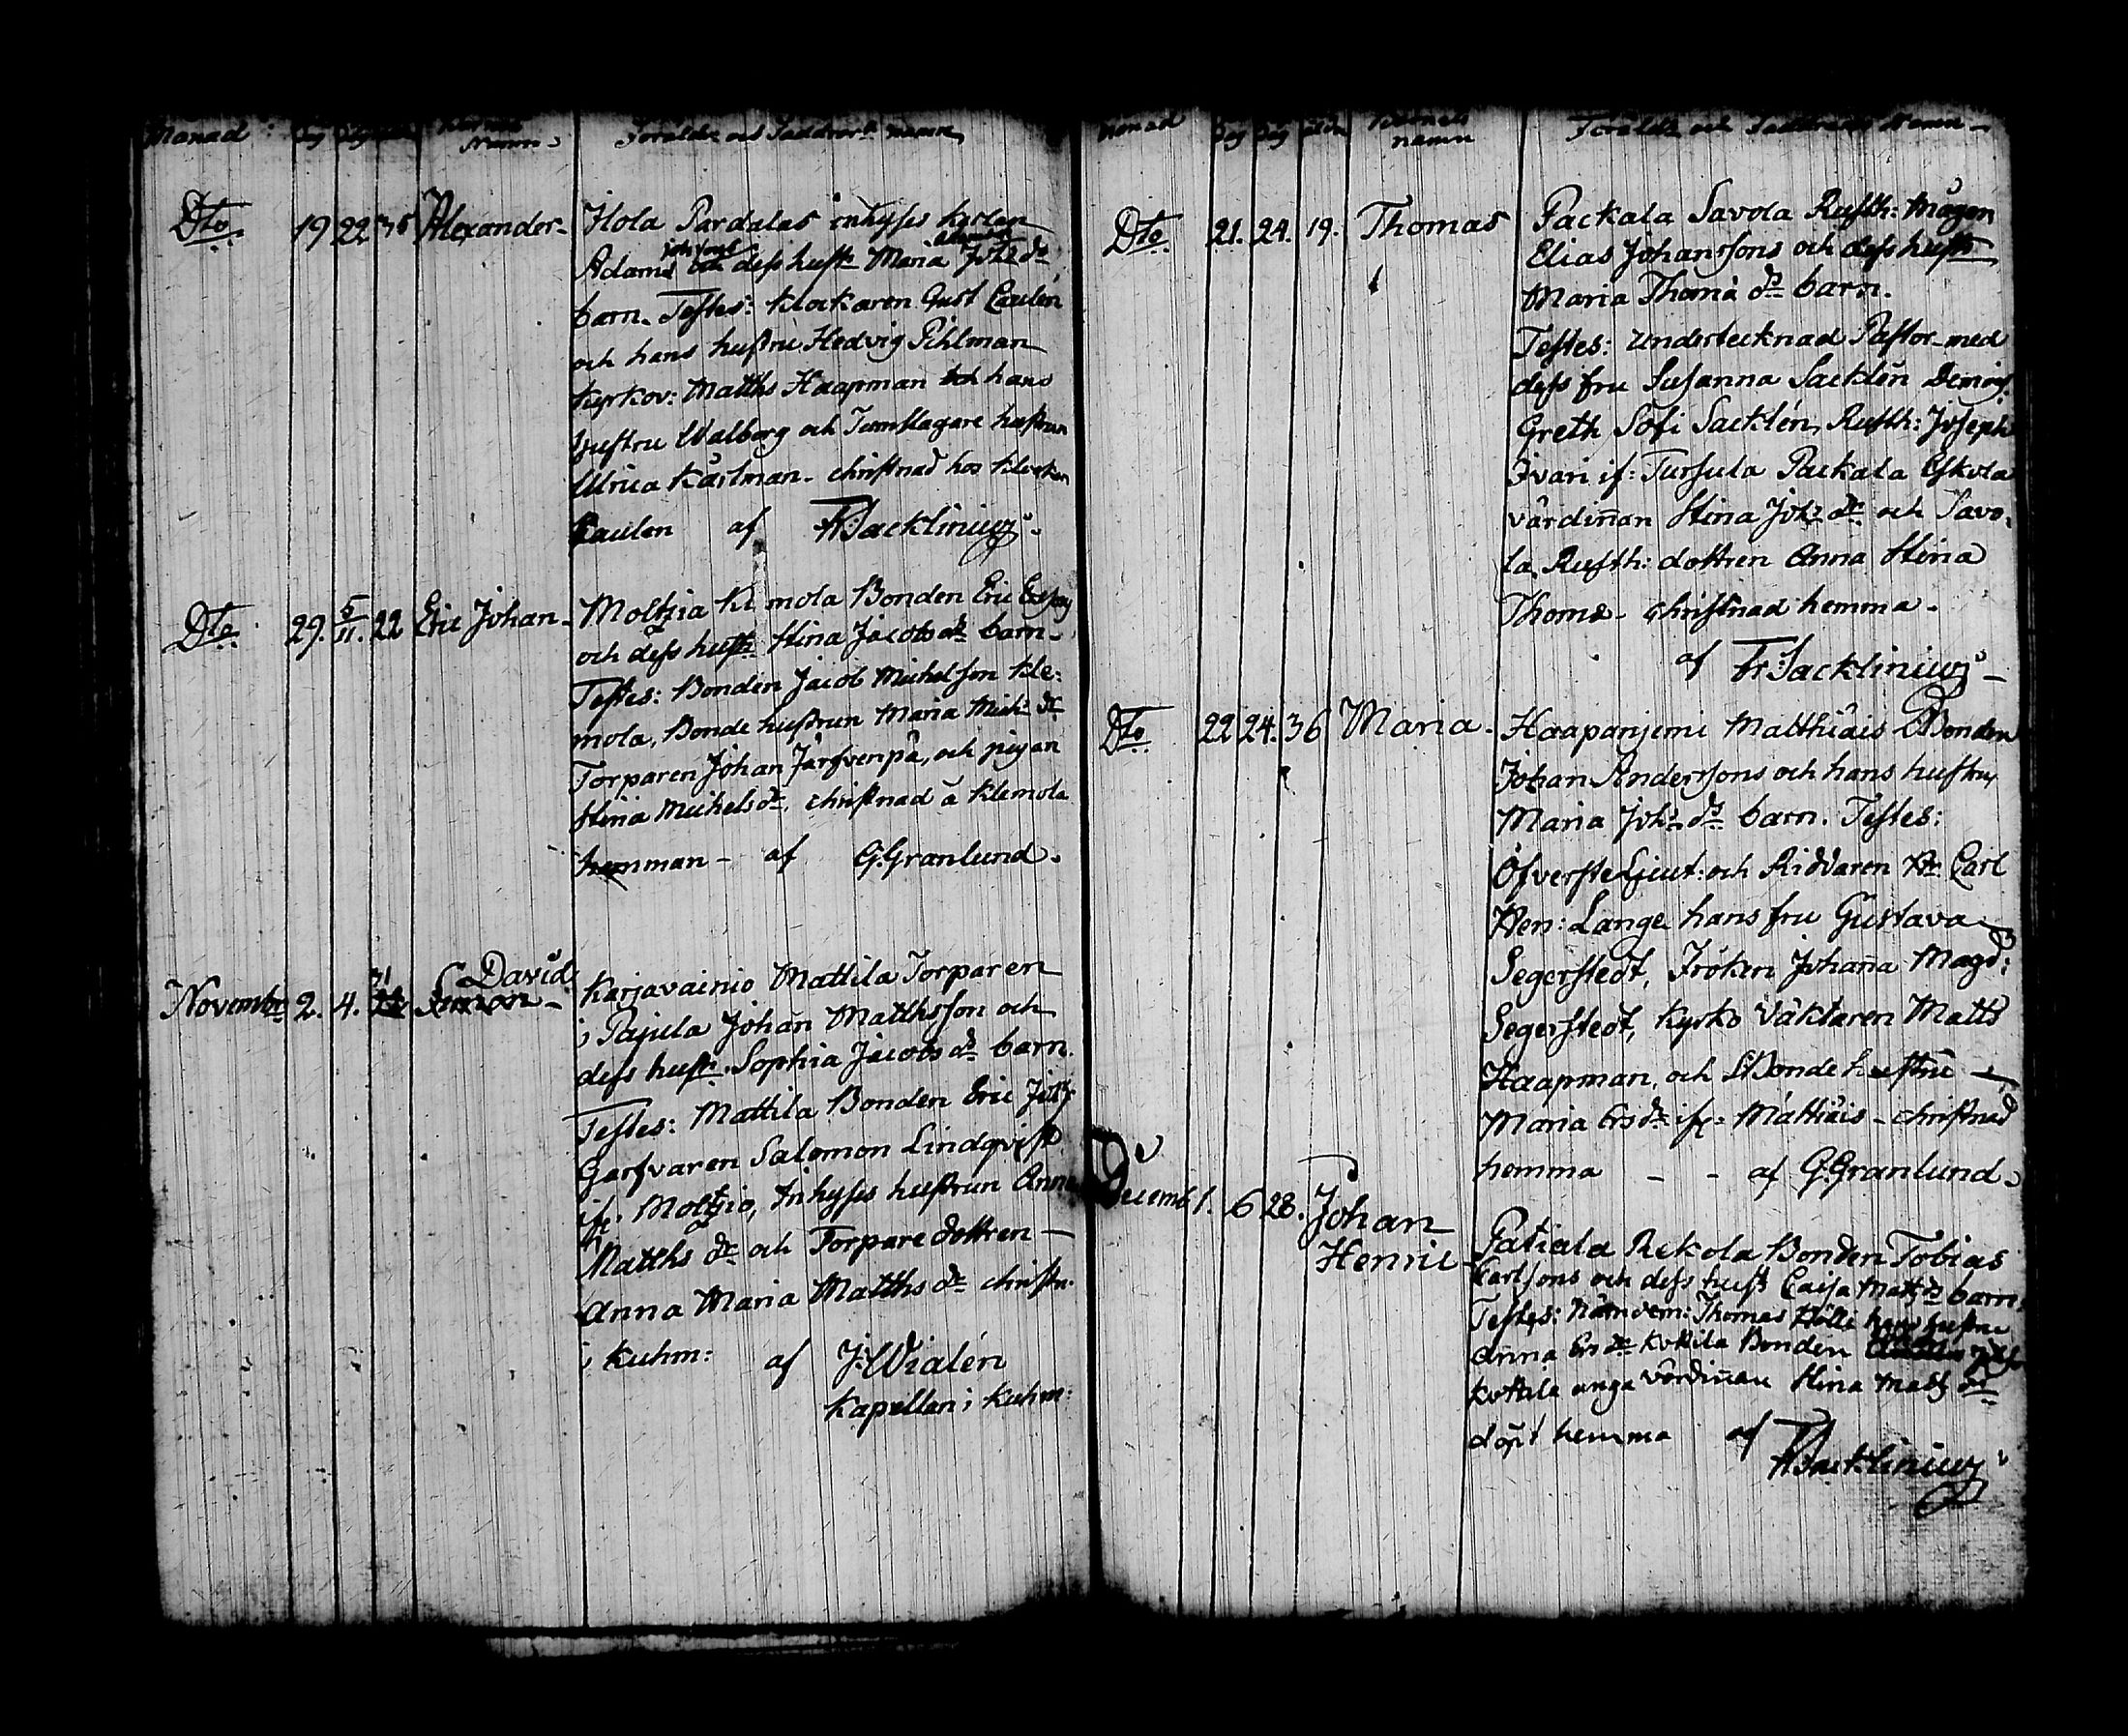 Månad Dag Dag Barnets
Namn Föräldr och Faddrars namn
Dto 19 22 36 Alexander Hola Pardalas inhyses karlen
Adams Joh:sons och dess hustr Maria Joh: dr
barn. Testes: klockaren Gust Caulen
och hans hustru Hedvig Pihlman
kyrkov: Matths Haapman och hans
hustru Walborg och Tumslagare hustrun
Ulrica Kärlman. christnad hos klockar
Caulen af Fr: Sacklinius
Dto 29. 5/11. 22 Eric Johan Moltzia Klemola Bonden Eric
och dess hustr Stina Jacobs dr barn
Testes: Bonden Jacob Michelson Kle:
mola, Bonde hustrun Maria Mich: dr
Torparen Johan Järfvenpä, och pigan
Stina Michels dr. christnad å Klemola
hemman - af G. Granlund.
Novembr 2. 4. 31 David Karjavainio Mattila Torparen
i Pajula Johan Matthsson och
dess hustr. Sophia Jacobs dr barn.
Testes: Mattila Bonden Eric
Garfvaren Salomon Lindqvist
ifr. Moltzio, Inhyses hustrun Anna
Matths dr och Torpare dottren
Anna Maria Matths dr christn.
i Kuhm: af J. Wialén
Kapellan i Kuhm:
Månad Dag Dag Barnets
namn Föräldr och Faddrars Namn
Dto 21. 24. 19. Thomas Packala Savola Rusth: Mågen
Elias Johanssons och dess hustr
Maria Thoma dr barn.
Testes: undertecknad Pastor med
dess fru Susanna Sacklén Demois:
Greth Sofi Sacklén, Rusth: Joseph
Ivari if: Tursula Packala Eskola
värdiñan Stina Joh: dr och Savo:
la Rusth: dottren Anna Stina
Thoms - christnad hemma.
af Fr: Sacklinius
Dto 22 24. 36 Maria. Haapanjemi Matthiais Bonden
Johan Anderssons och hans hustru
Maria Joh: dr barn. Testes:
Öfverste Ljeut: och Riddaren Hr Carl
Hen: Lange hans fru Gustava
Segerstedt, Fröken Johaña Magd:
Segerstedt, Kyrko Väktaren Matts
Haapman, och Bonde hustru
Maria Ers dr ifr: Mattiais - christnad
hemma - - af G. Granlund.
Decemb 1. 6 28. Johan
Henric Patiala Rekola Bonden Tobias
Carlsons och dess hustr Caisa Matts dr barn.
Testes: Nämdem: Thomas Hölli hans hustru
Anna Ers dr Kottila Bonden
Kottila unga värdiñan Stina Matts dr
döpt hemma af
Fr: Sacklinius